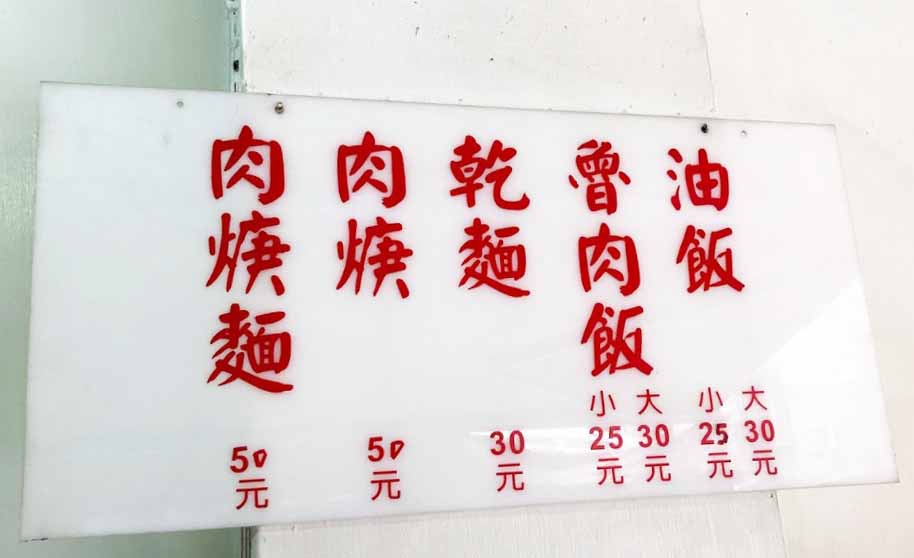 油飯
大30元
小25元
魯肉飯
大30元
小25元
乾麵
30元
肉焿
50元
肉焿麵
50元